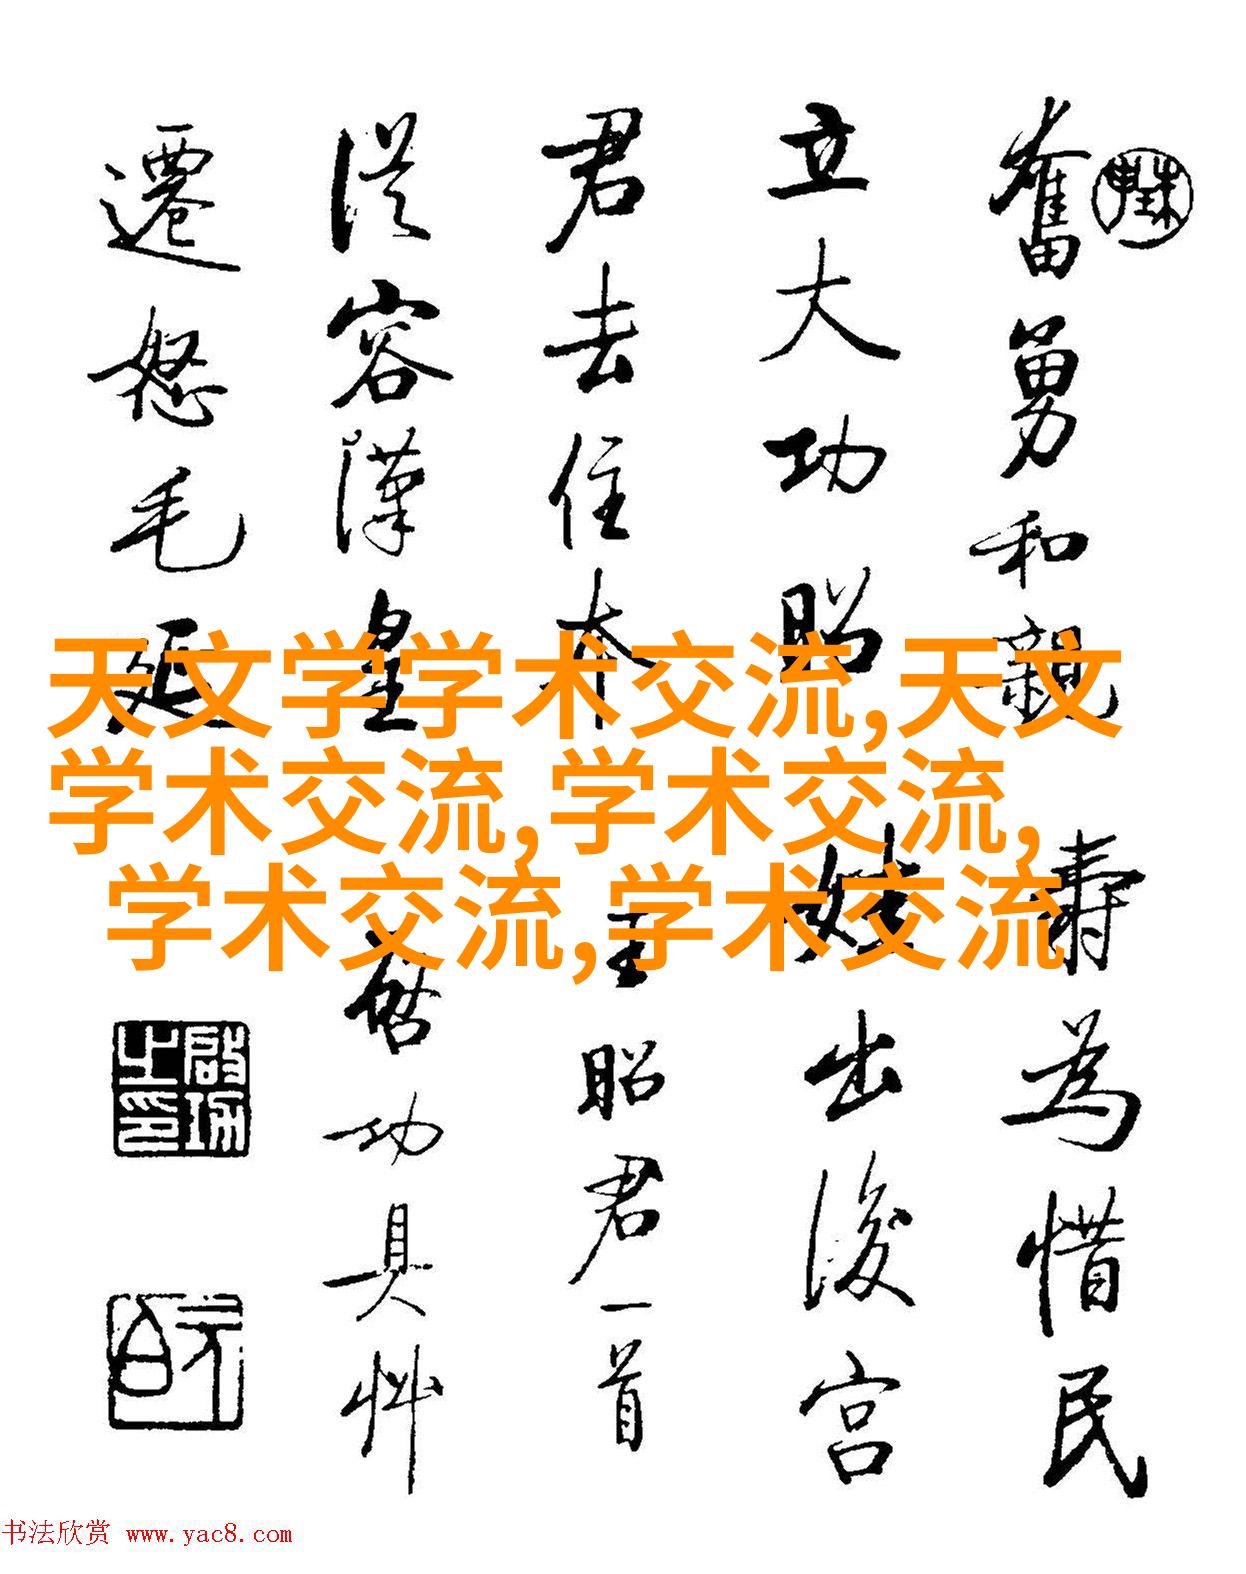 奮勇和親壽為惜民
立大功昭出後宮
君去住王昭君一首
從容漢皇啓功具艸
遷怒毛延
啟功之印
天文学学术交流,天文
学术交流,学术交流,
学术交流,学术交流
书法欣赏 www.yac8.com